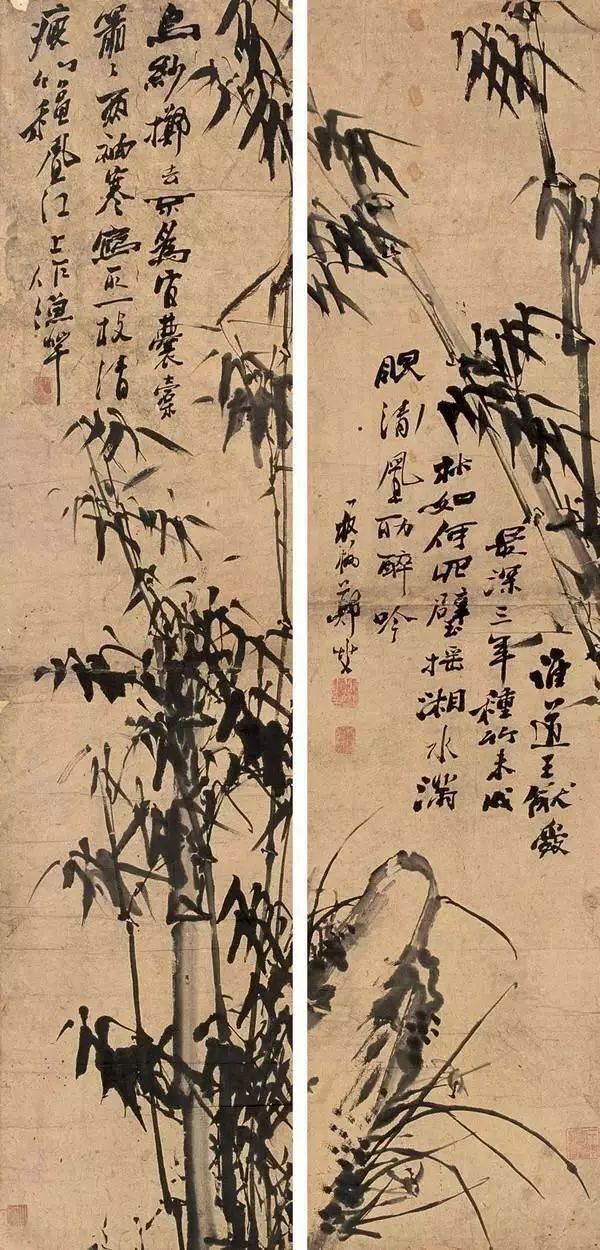 誰道王猷
最深三年種竹未成
林如何壁搖湘水滿
眼清風助醉吟
板橋鄭燮
烏紗擲去不為官囊橐
蕭〻兩袖寒寫取一枝清
瘦竹秋風江上作漁竿